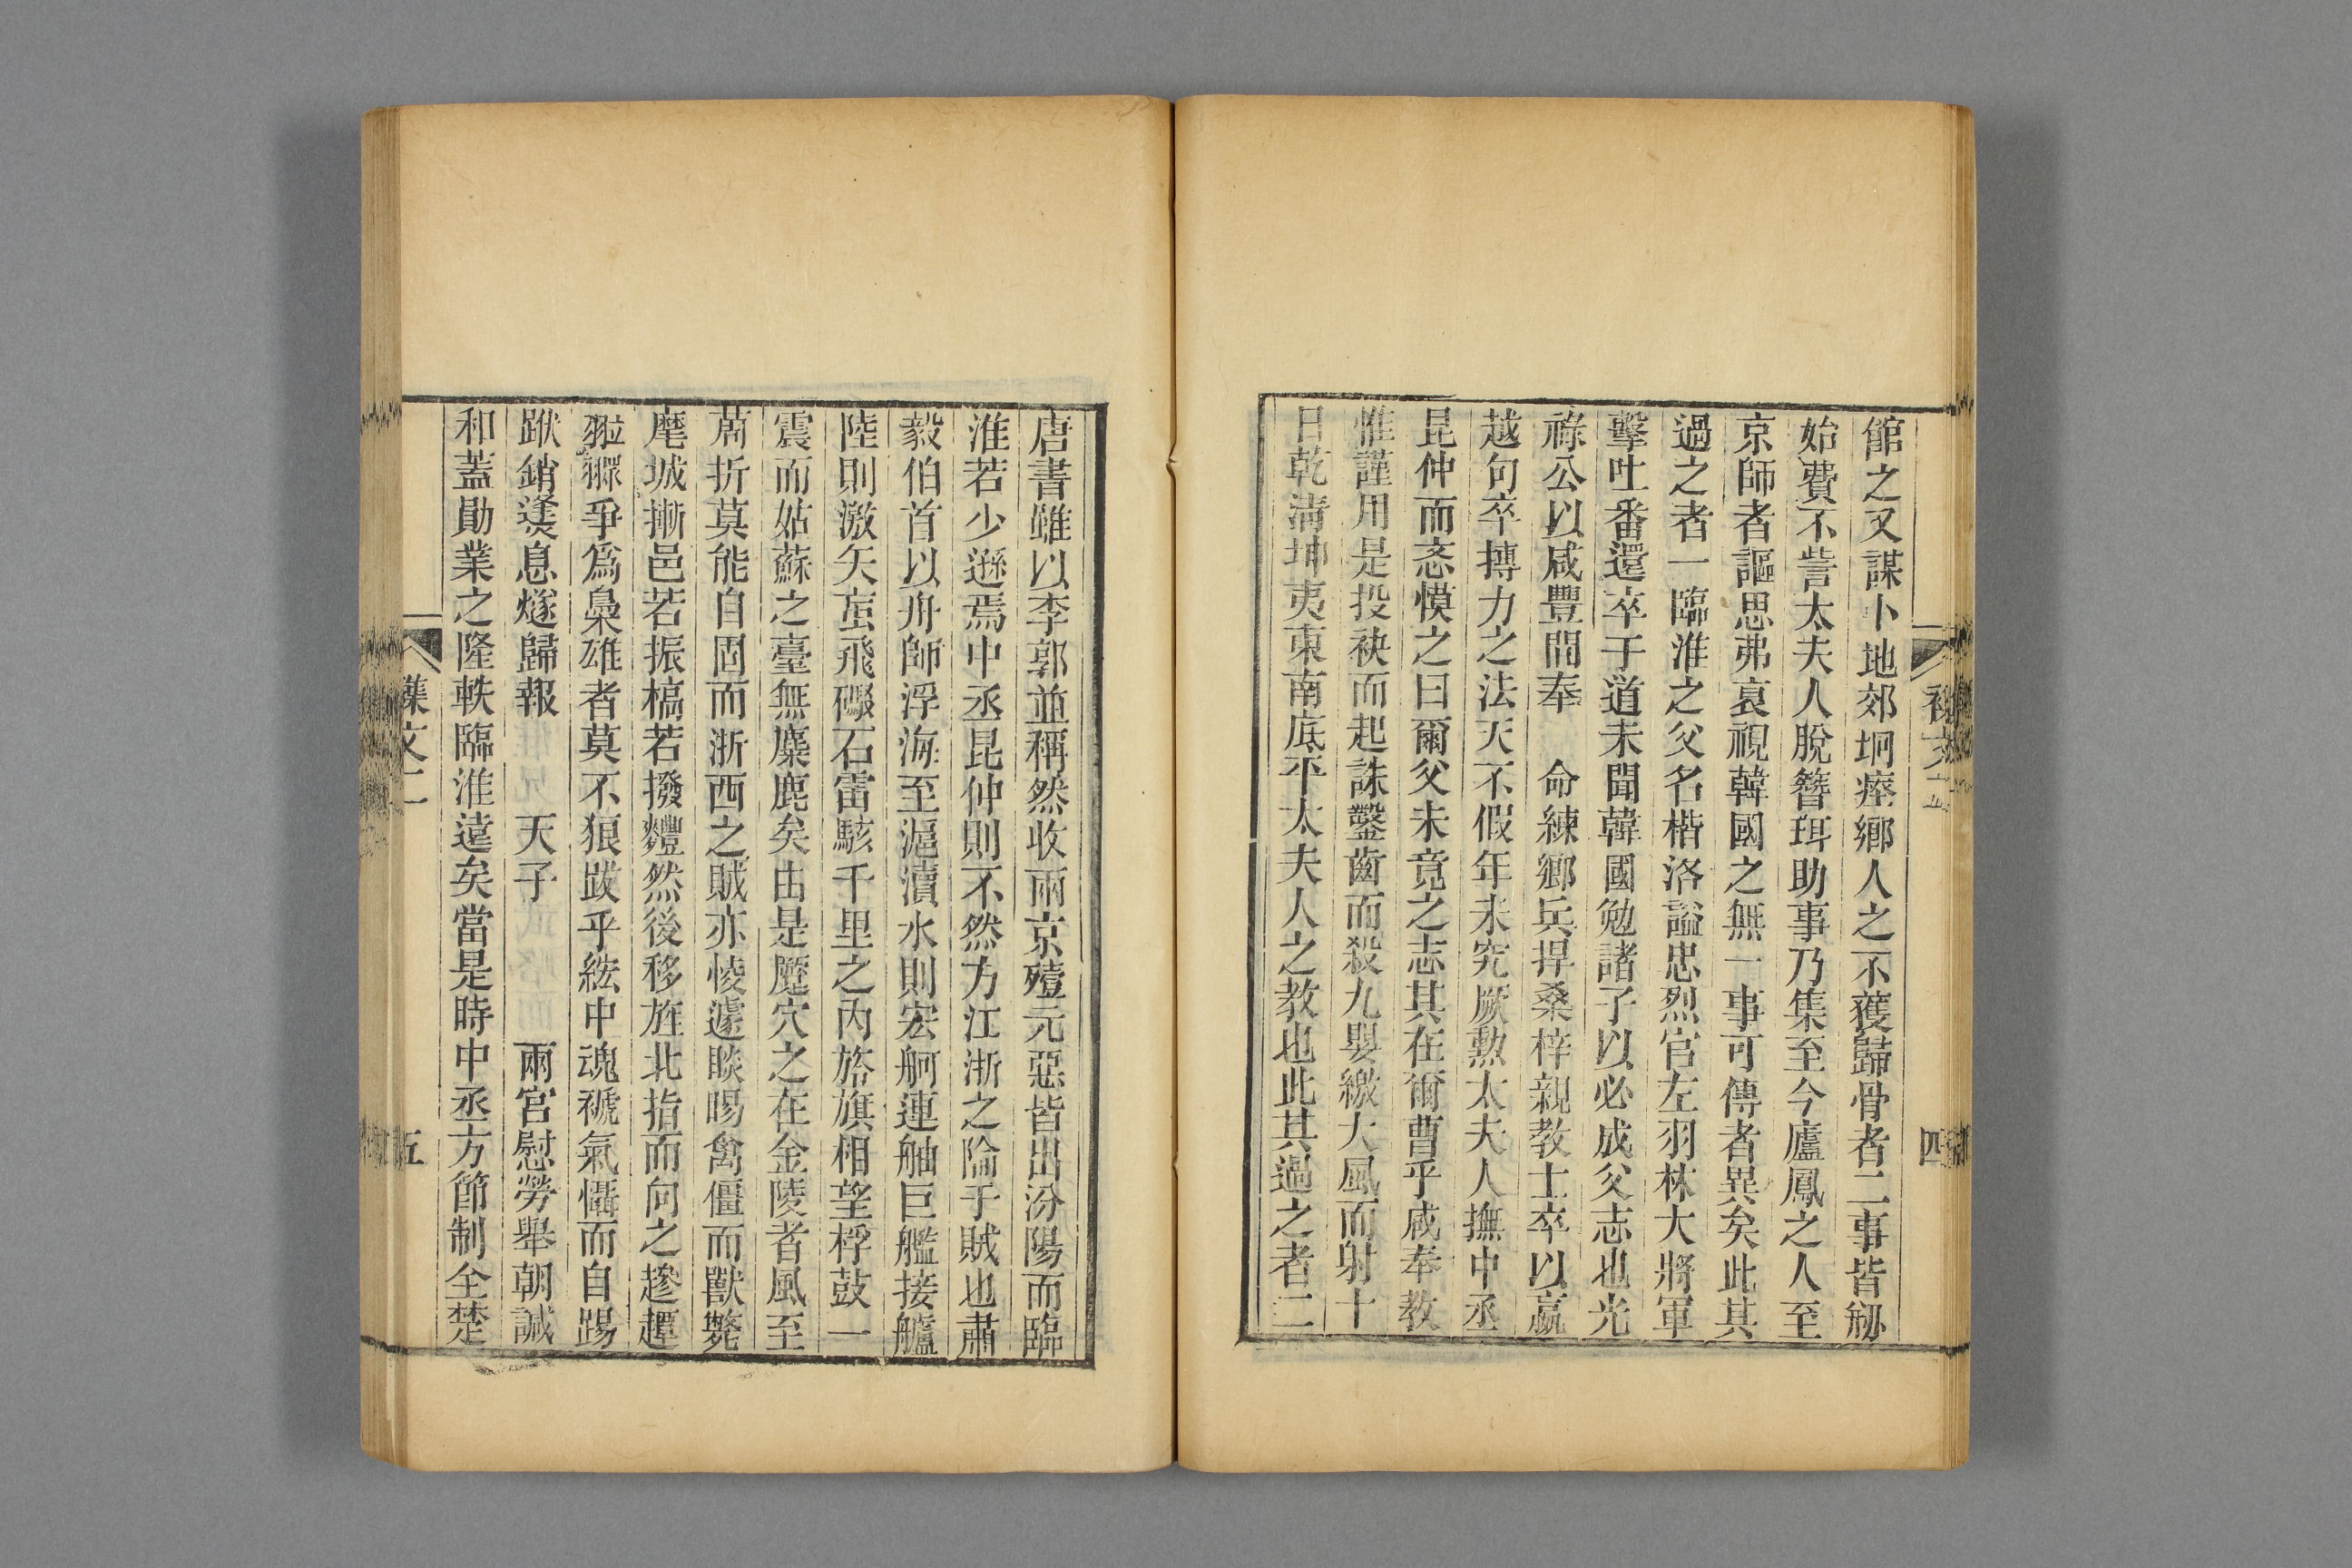 館之又謀卜地郊坰瘞鄉人之不獲歸骨者二事皆剏
始費不訾太夫人脫簪珥助事乃集至今廬鳳之人至
京師者謳思弗衰視韓國之無一事可傳者異矣此其
過之者一臨淮之父名楷洛謚忠烈官左羽林大將軍
擊吐番還卒于道未聞韓國勉諸子以必成父志也光
祿公以咸豐間奉 命練鄉兵捍桑梓親教士卒以嬴
越句卒搏力之法天不假年未究厥勲太夫人撫中丞
昆仲而恣慔之曰爾父未竟之志其在爾曹乎咸奉教
惟謹用是投袂而起誅鑿齒而殺九嬰繳大風而射十
日乾清坤夷東南底平太夫人之教也此其過之者二
四
唐書雖以李郭並稱然收兩京殪元惡皆出汾陽而臨
淮若少遜焉中丞昆仲則不然方江浙之陥于賊也肅
毅伯首以舟師浮海至滬瀆水則宏舸連舳巨艦接艫
陸則激矢䖟飛礮石雷駭千里之內旍旗相望桴鼓一
震而姑蘇之臺無麋鹿矣由是蹙穴之在金陵者風至
蔏折莫能自固而浙西之賊亦悽遽睒睗禽僵而獸斃
麾城摲邑若振槁若撥麷然後移旌北指而向之趁趯
翋䎀爭為梟雄者莫不狼跋乎紭中魂褫氣懾而自踼
踿銷㷭息燧歸報 天子 兩宮慰勞舉朝諴
和蓋勛業之隆軼臨淮遠矣當是時中丞方節制全楚
文二
五